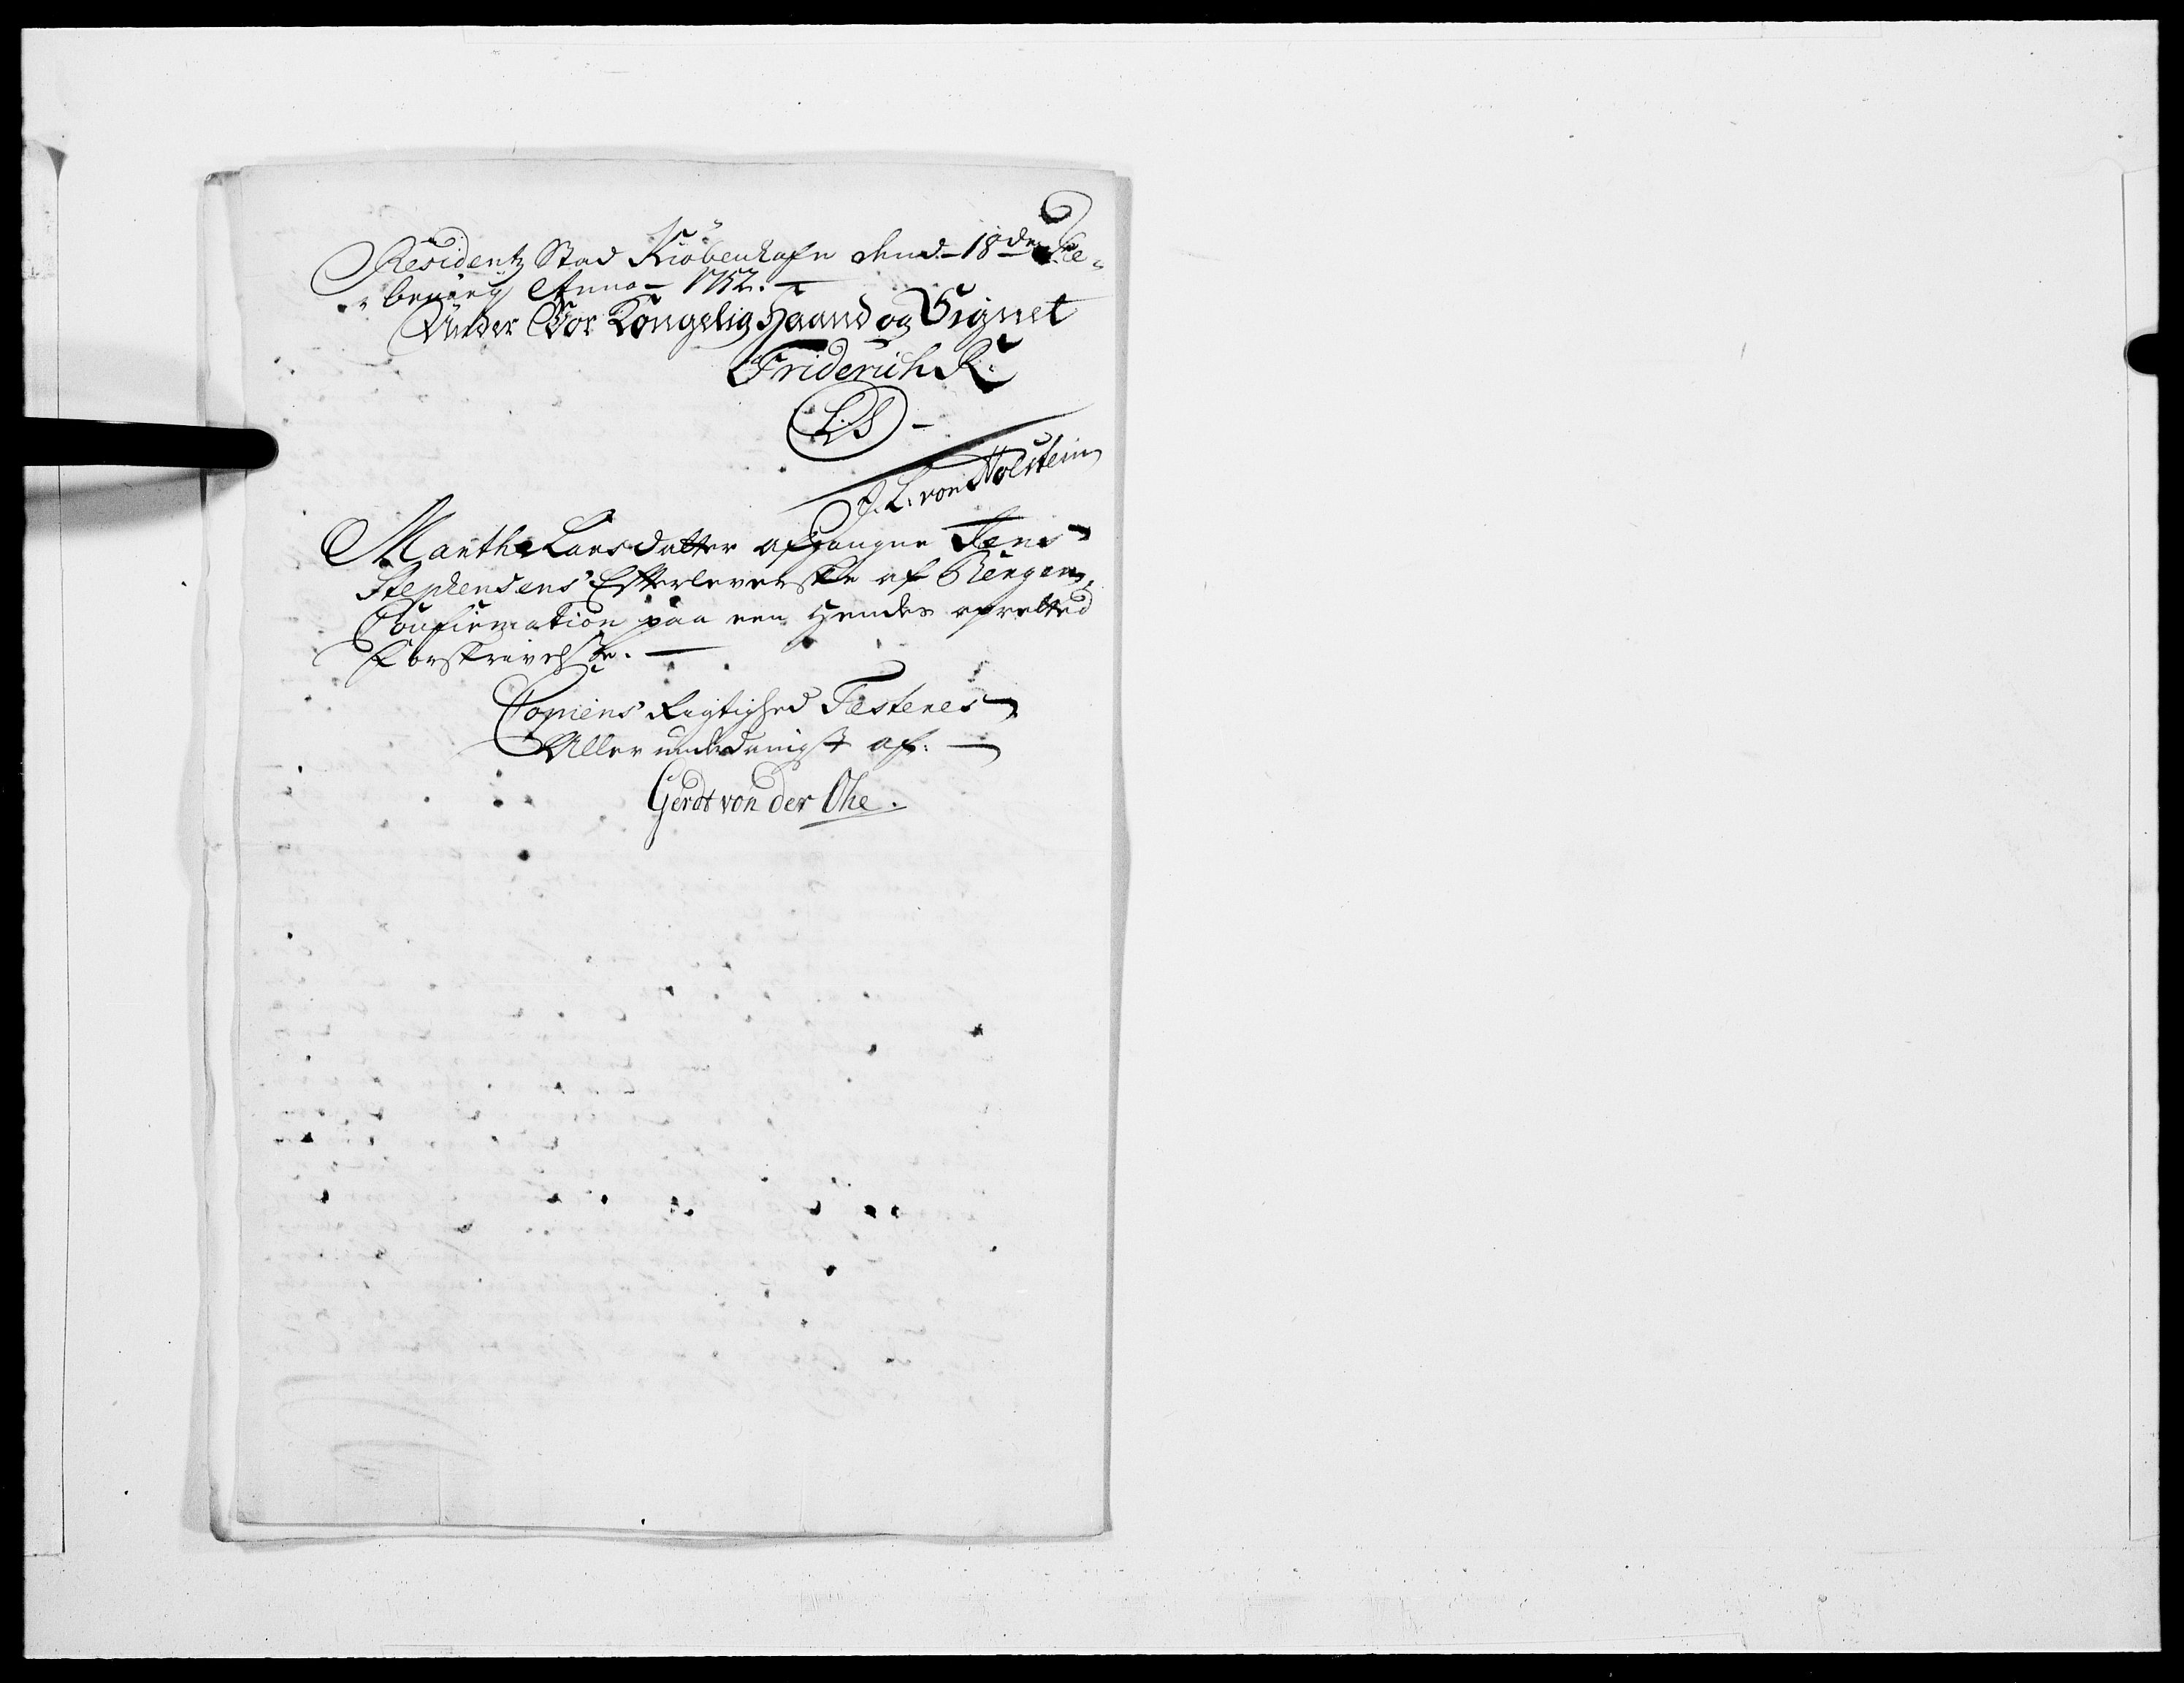 Residentz Stad Kiöbenhafn dend 18de Fe-
bruarij Anno 1752.
Under Vor Kongelig Haand og Signet
Friderich R:
L.S
J. L. von Holstein
Marthe Larsdatter afgangne Jens
Stephensens Efterleverske af Bergen,
Confirmation paa een hendes opretted
Forskrivelse.
Copiens Rigtighed Testeres
Aller underdanigst af:
Gerdt von der Ohe.